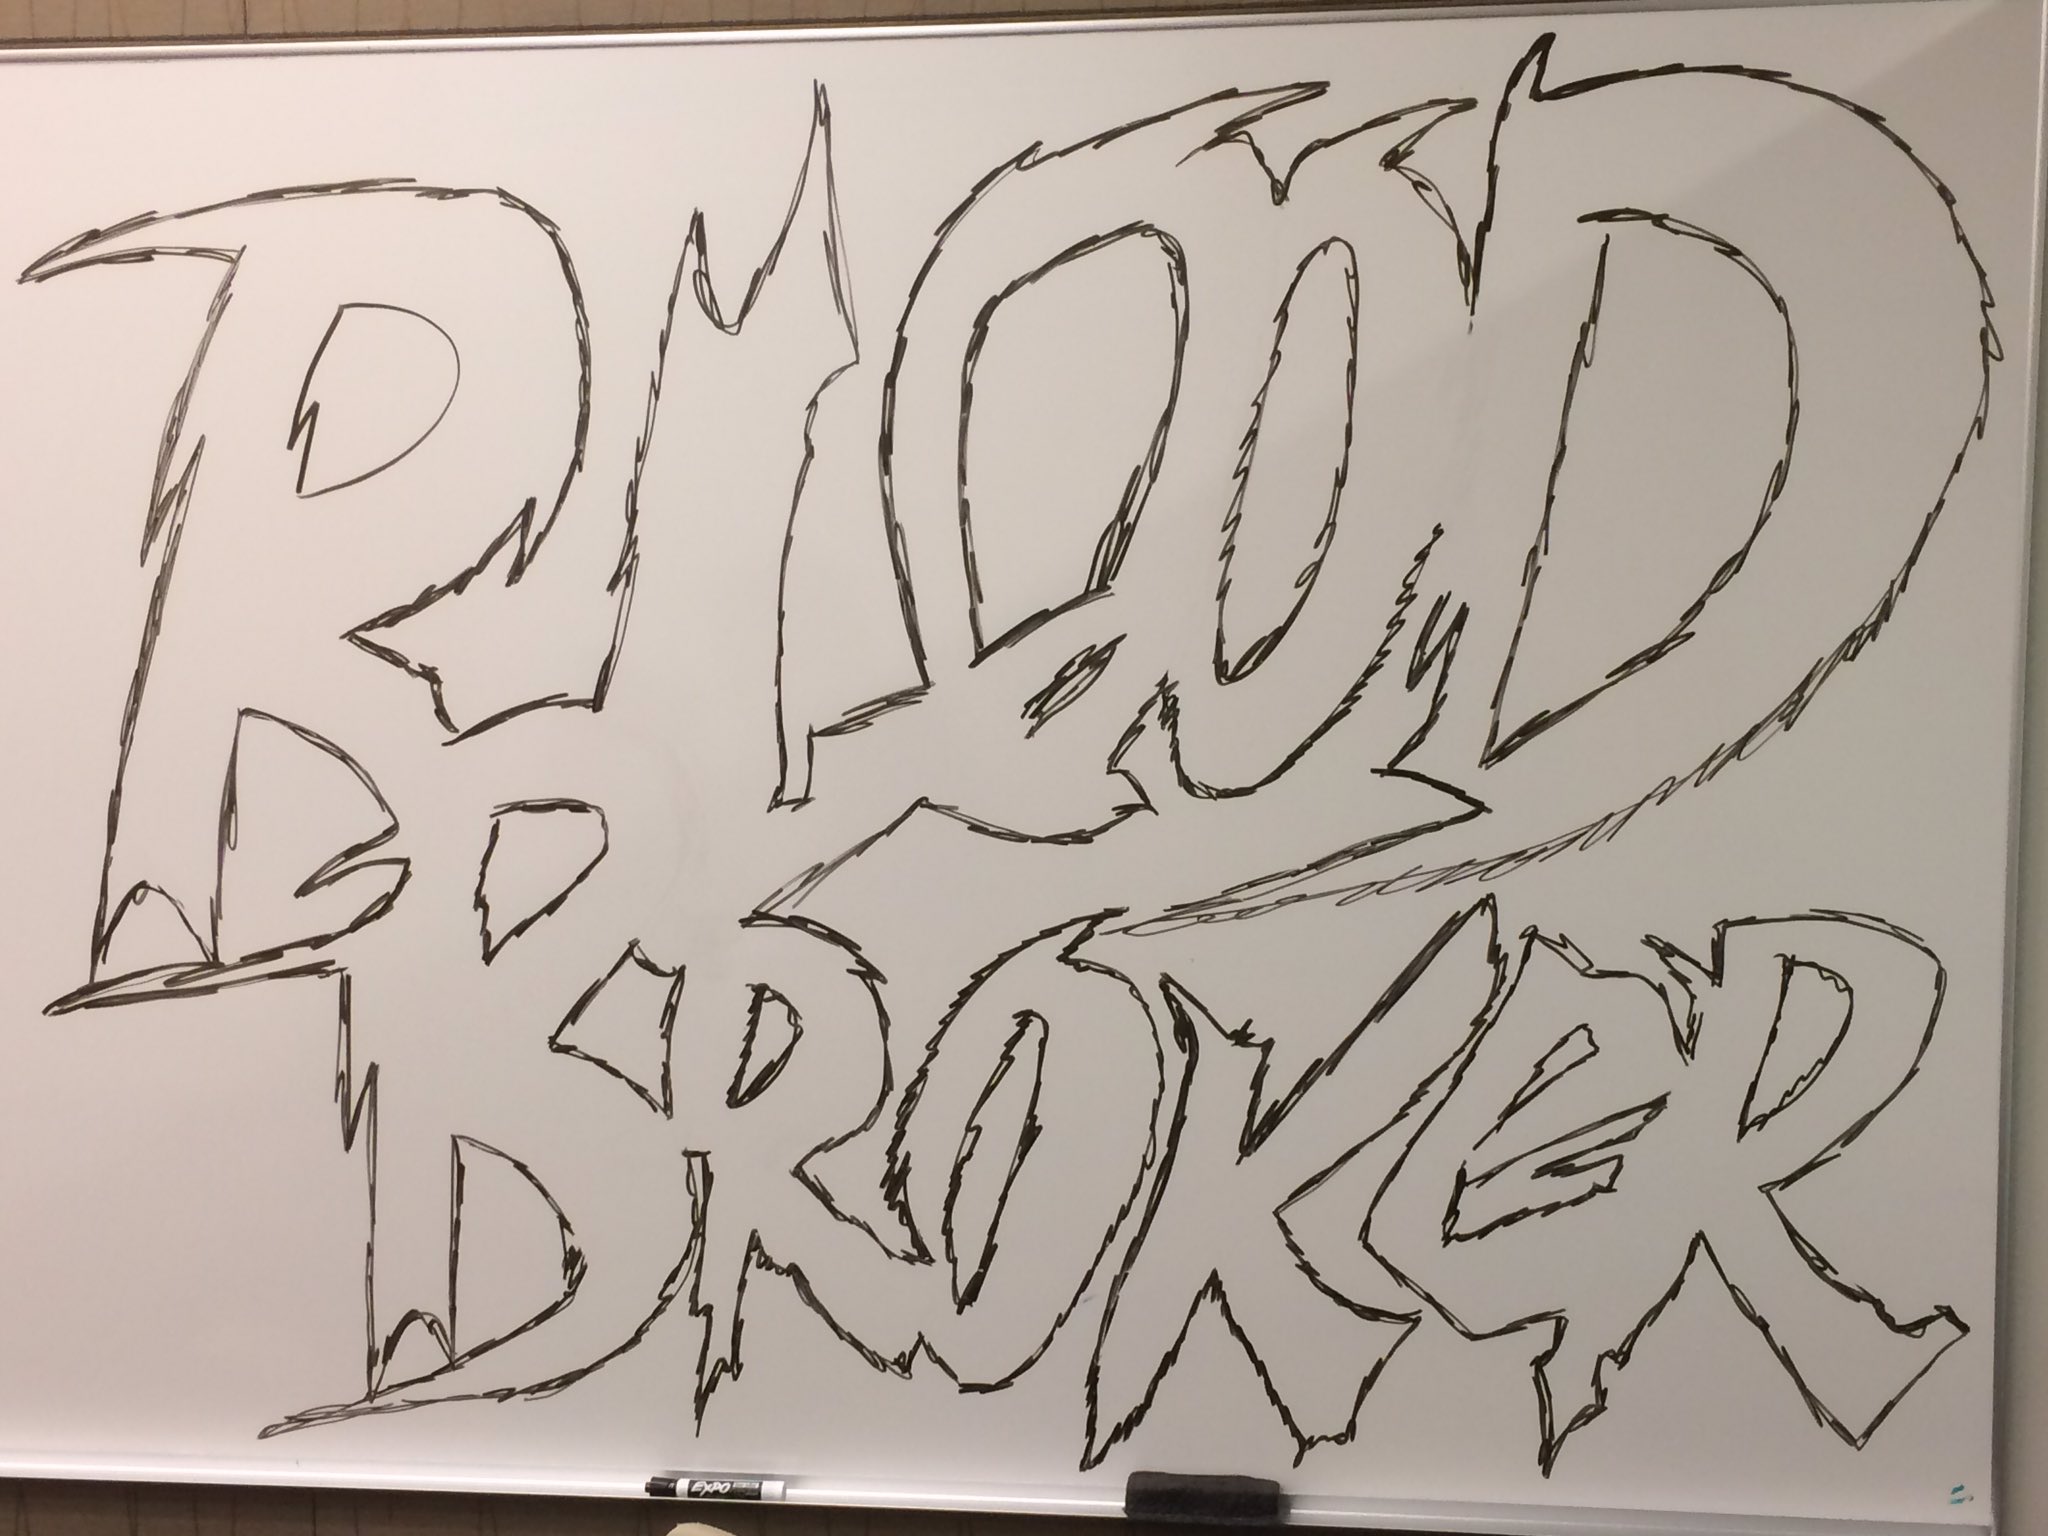 BLOOD
BROKER
EXPO